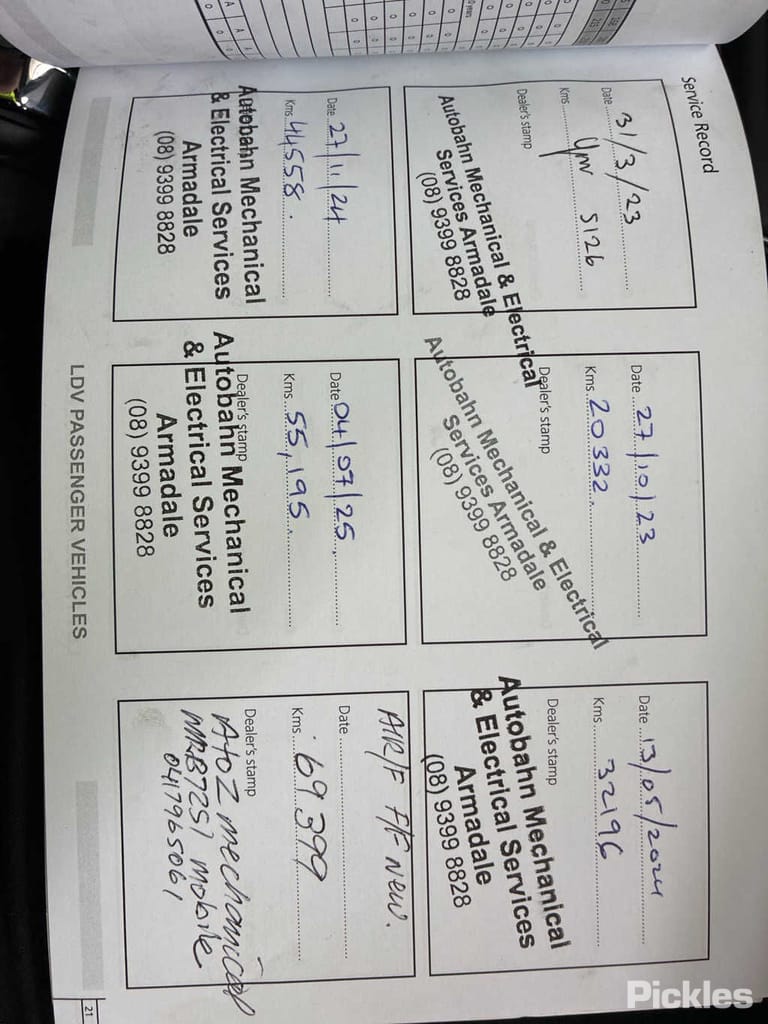 Service Record
Date 31/3/23
Kms 5126
Dealer's stamp
Autobahn Mechanical & Electrical
Services Armadale
(08) 9399 8828
Date 27/10/23
Kms 20332
Dealer's stamp
Autobahn Mechanical & Electrical
Services Armadale
(08) 9399 8828
Date 13/05/2024
Kms 32196
Dealer's stamp
Autobahn Mechanical
& Electrical Services
Armadale
(08) 9399 8828
Date 27/11/24
Kms 44558.
Autobahn Mechanical
& Electrical Services
Armadale
(08) 9399 8828
Date 04/07/25
Kms 55,195
Dealer's stamp
Autobahn Mechanical
& Electrical Services
Armadale
(08) 9399 8828
AIR/F F/F new.
Date
Kms 69399
Dealer's stamp
AtoZ mechanical
MRB7251 mobile
0417965061
LDV PASSENGER VEHICLES
21
Pickles